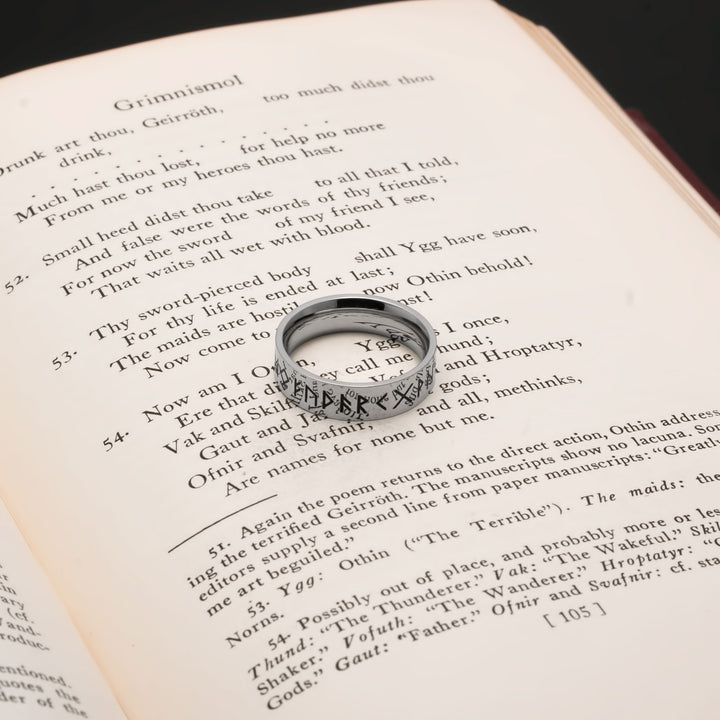 Grimnismol
Drunk art thou, Geirröth, too much didst thou
drink,
. . . . . . . . . . . . . . .
Much hast thou lost, for help no more
From me or my heroes thou hast.
52. Small heed didst thou take to all that I told,
And false were the words of thy friends;
For now the sword of my friend I see,
That waits all wet with blood.
53. Thy sword-pierced body shall Ygg have soon,
For thy life is ended at last;
The maids are now Othin behold!
Now come
54. Now am I I once,
Ere that call me
Vak and and Hroptatyr,
Gaut and gods;
Ofnir and Svafnir, and all, methinks,
Are names for none but me.
51. Again the poem returns to the direct action, Othin
ing the terrified Geirröth. The manuscripts show no lacuna.
editors supply a second line from paper manuscripts:
me art beguiled."
53. Ygg: Othin ("The Terrible"). The maids:
Norns.
54. Possibly out of place, and probably more or
Thund: "The Thunderer." Vak: "The Wakeful."
Shaker." Vofuth: "The Wanderer." Hroptatyr:
Gods." Gaut: "Father." Ofnir and Svafnir: cf.
[ 105 ]
(cf.
and-
roduc-
entioned.
quotes the
der of the